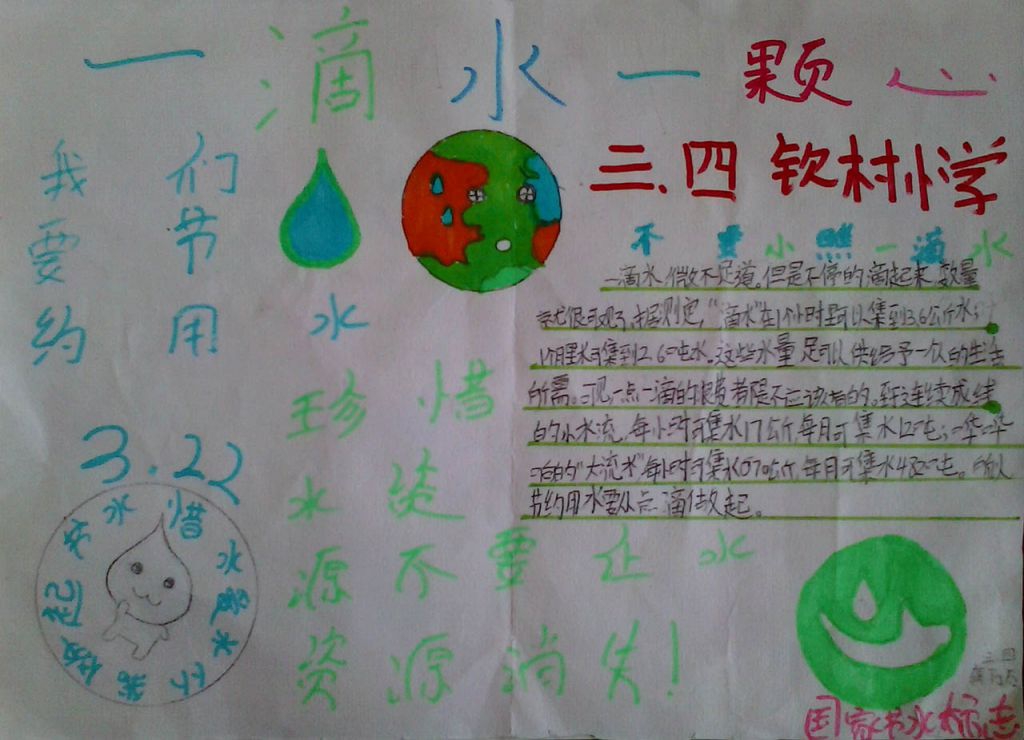 一滴水一颗心
三、四 钦村小学
我们
要节
约用水
珍惜
水资
源不要让水
资源消失!
3.22
惜水爱水从我做起 节水
不要小瞧一滴水
一滴水,微不足道。但是不停的滴起来,数量
就很可观了。据测定,"滴水"在1个小时里可以集到3.6公斤水;
1个月里水可集到2.6吨水。这些水量,足可以供给予一个人的生活
所需。可见一点一滴的浪费都是不应该有的。至于连续成线
的小水流,每小时可集水17公斤,每月可集水12吨;
的"大流水"每小时可集水670公斤,每月可集水482吨。所以
节约用水要从点滴做起。
三、四
国家节水标志